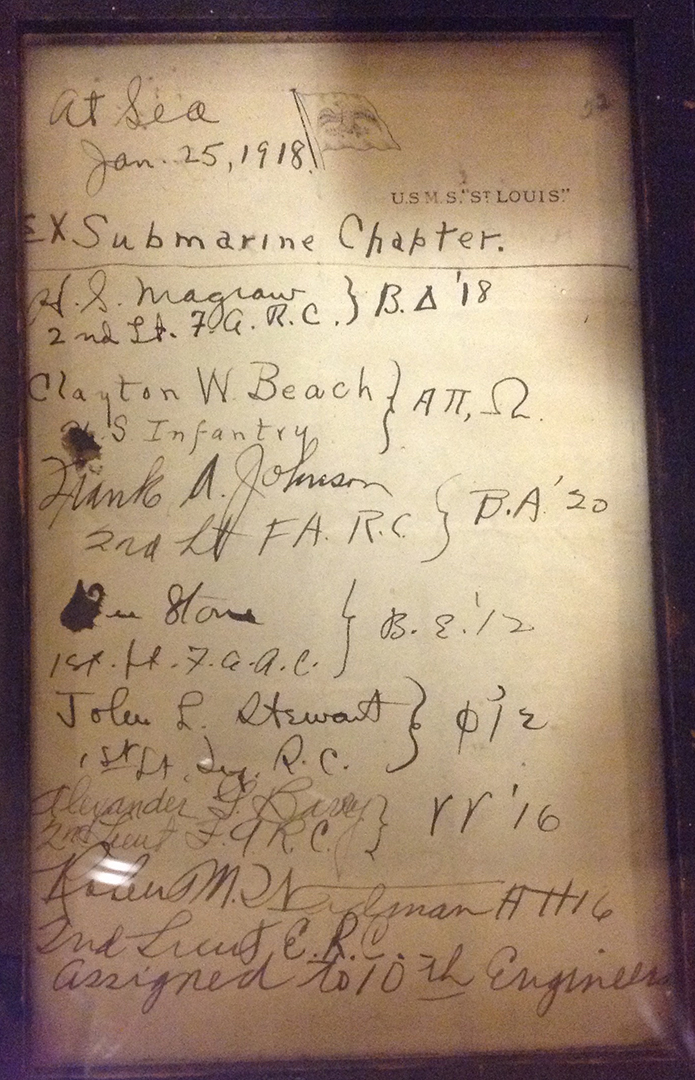 At Sea
Jan. 25, 1918.
U.S.M.S. "ST LOUIS."
EX Submarine Chapter.
H. S. Magraw } B. Δ '18
2nd Lt. F. A. R. C.
Clayton W. Beach } A Π, Ω.
U.S Infantry
Frank A. Johnson } B. A. '20
2nd Lt F A. R. C.
Stone } B. Ε. '12
1st. Lt. F. A. R. C.
John L. Stewart } Φ '12
1st Lt R. C.
Alexander G Barry } ΓΓ '16
2nd Lieut F. A R. C.
Robert M. H H '16
2nd Lieut E. R. C.
Assigned to 10th Engineers